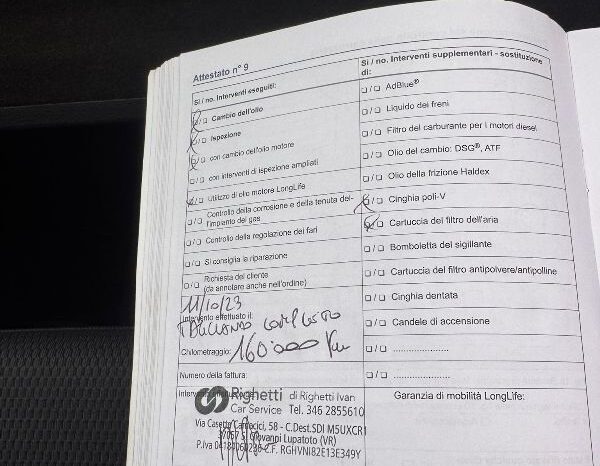 Attestato n° 9
Si / no. Interventi eseguiti:
Si / no. Interventi supplementari - sostituzione di:
☐/☐ Cambio dell'olio
☐/☐ AdBlue®
☐/☐ Ispezione
☐/☐ Liquido dei freni
☐/☐ con cambio dell'olio motore
☐/☐ Filtro del carburante per i motori diesel
☐/☐ con interventi di ispezione ampliati
☐/☐ Olio del cambio: DSG®, ATF
☐/☐ Utilizzo di olio motore LongLife
☐/☐ Olio della frizione Haldex
☐/☐ Controllo della corrosione e della tenuta del-
l'impianto del gas
☐/☐ Cinghia poli-V
☐/☐ Controllo della regolazione dei fari
☐/☐ Cartuccia del filtro dell'aria
☐/☐ Si consiglia la riparazione
☐/☐ Bomboletta del sigillante
☐/☐ Richiesta del cliente
(da annotare anche nell'ordine)
☐/☐ Cartuccia del filtro antipolvere/antipolline
11/10/23
Intervento effettuato il:
☐/☐ Cinghia dentata
TAGLIANDO COMPLETO
☐/☐ Candele di accensione
Chilometraggio: 160'000 Km
☐/☐ ....................
Numero della fattura:
☐/☐ ....................
Garanzia di mobilità LongLife:
Righetti di Righetti Ivan
Car Service Tel. 346 2855610
58 - C.Dest.SDI M5UXCR1
37057 S. Giovanni Lupatoto (VR)
P.Iva C.F. RGHVNI82E13E349Y